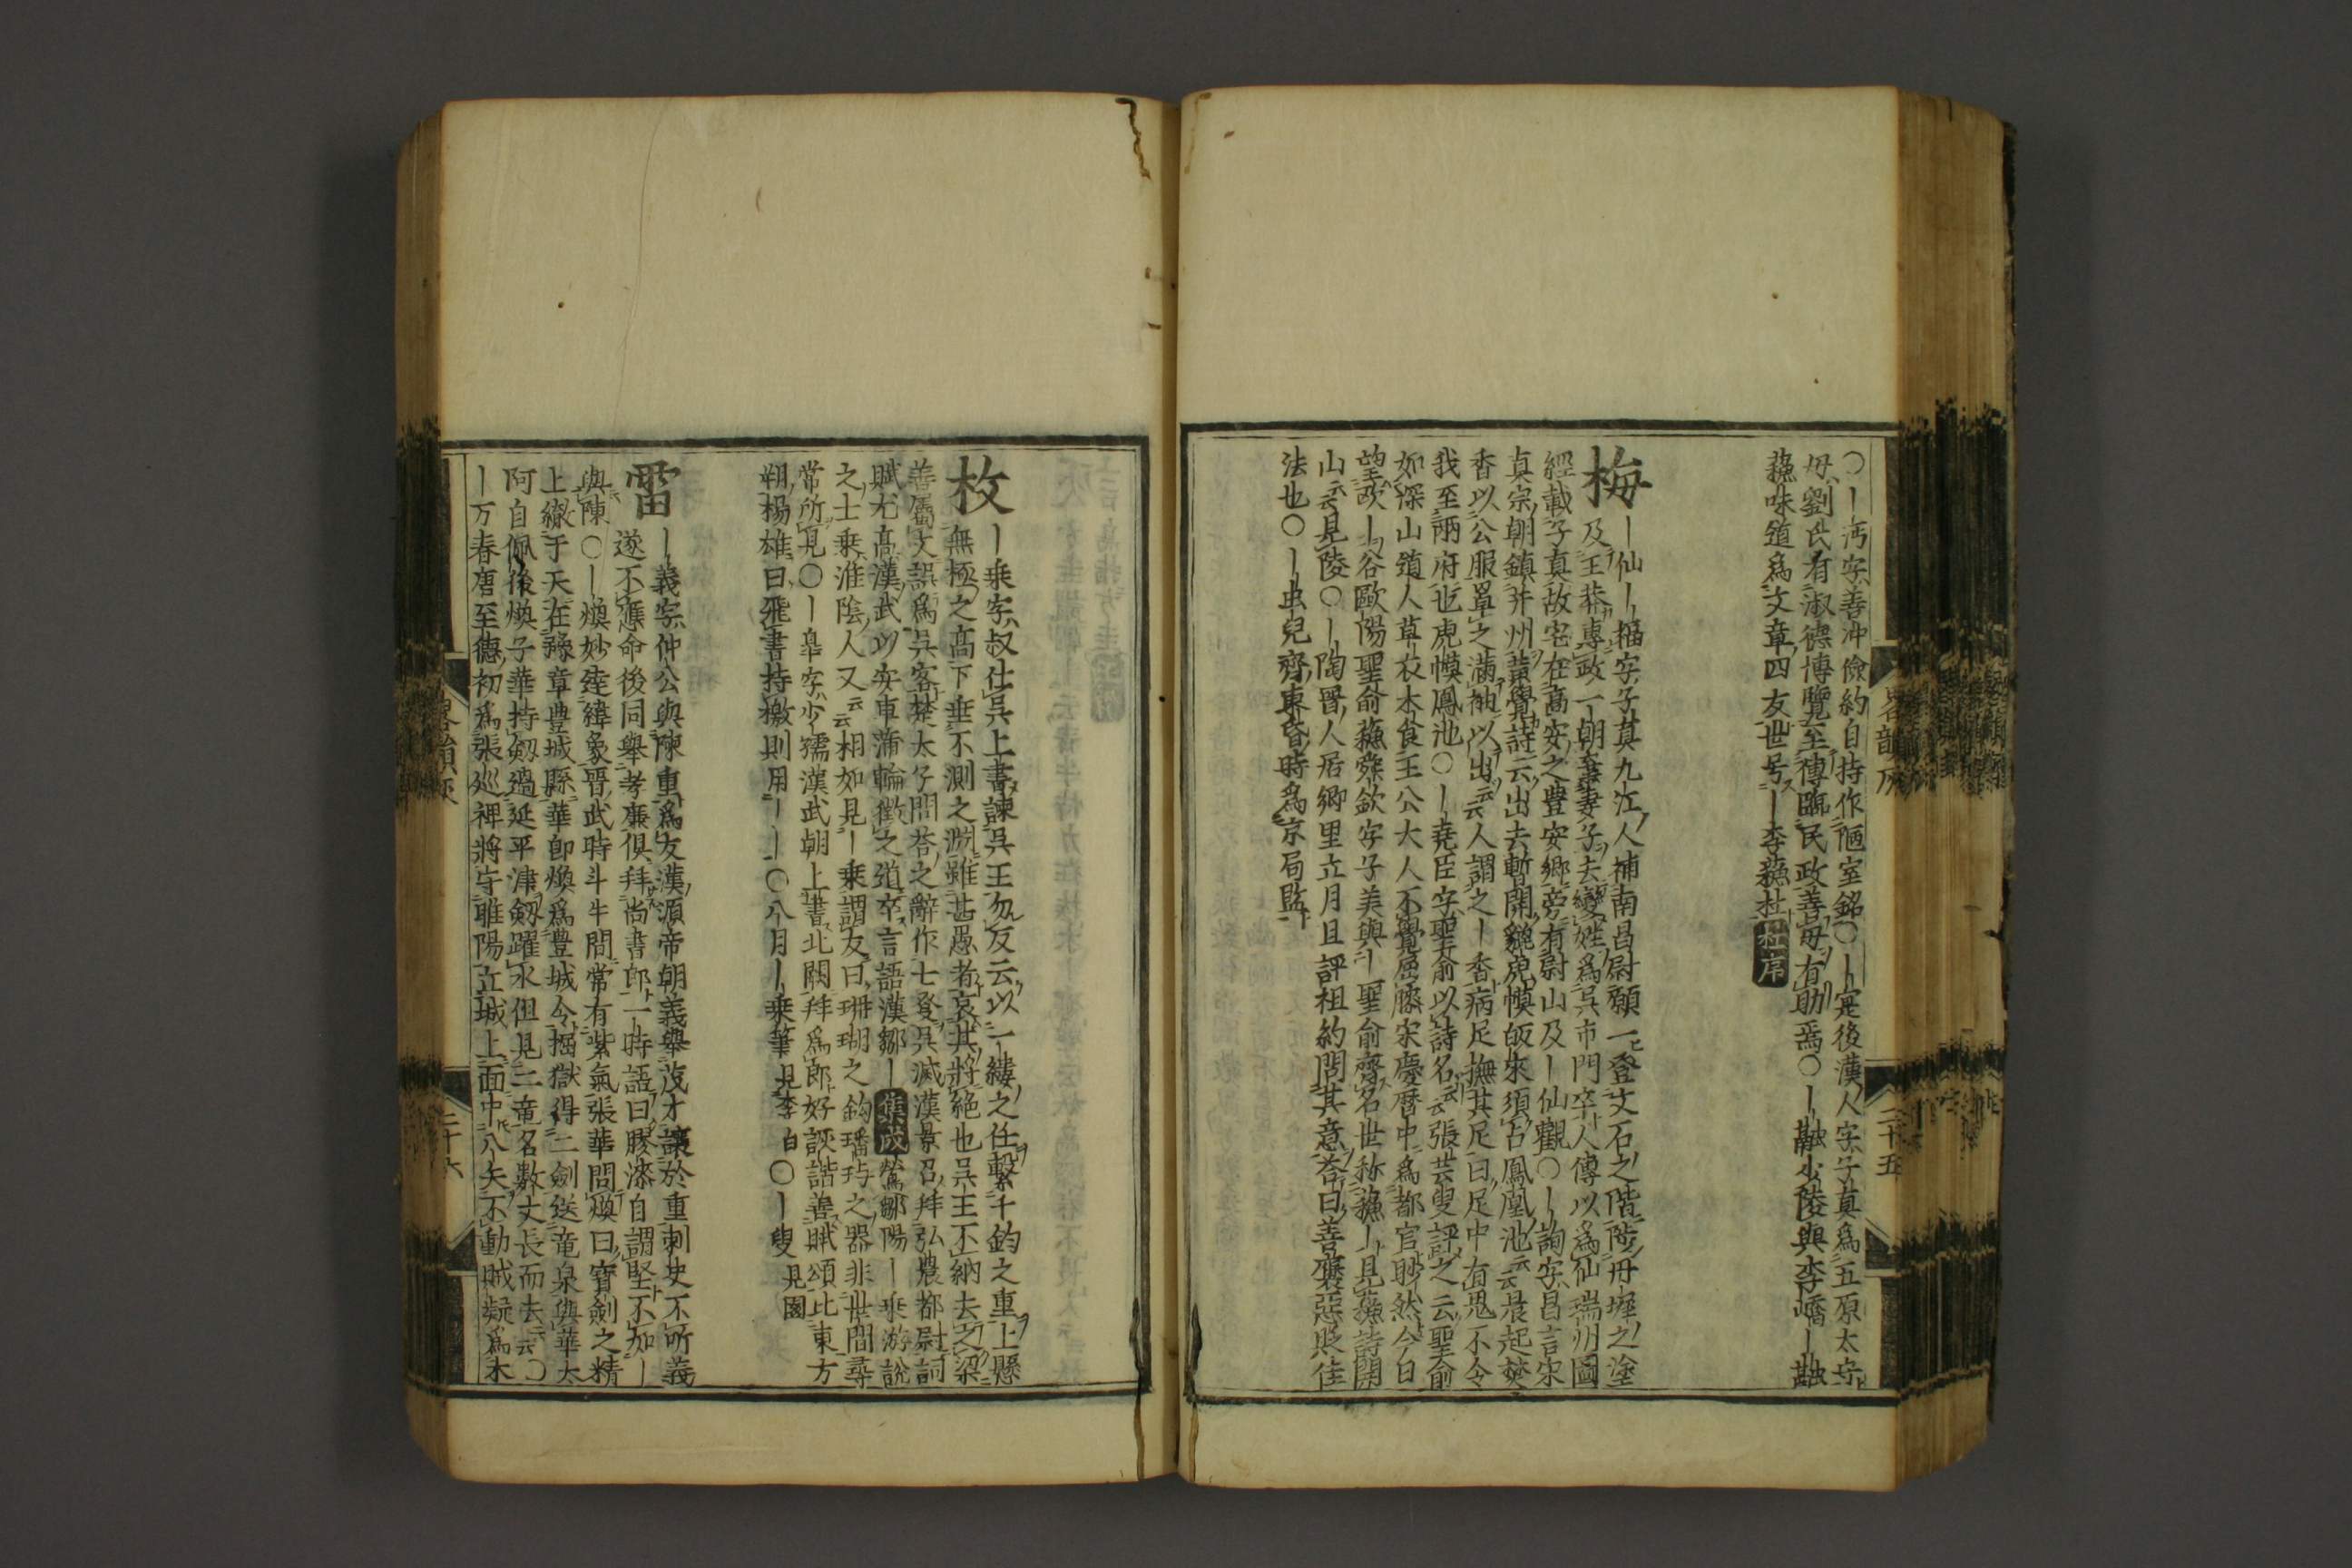 ○ー沔字善冲儉約自持作陋室銘○ー寔後漢人字子真爲五原太守
母劉氏有淑德博覽至傳臨民政善母有助焉○ー融少陵與李嶠ー融
蘓味道爲文章四友世号ー李蘓杜杜序
梅
ー仙ー福字子真九江人補南昌尉願一登文石之階陟丹墀之塗
及王莽專政一朝棄妻子去變姓爲吳市門卒人傳以爲仙瑞州圖
經載子真故宅在高安之豊安鄉旁有尉山及ー仙觀○ー詢字昌言宋
真宗朝鎮并州黃覺詩云出去暫開貔虎幙皈來須占鳳凰池云晨起焚
香以公服罩之滿袖以出云人謂之ー香病足撫其足曰足中有鬼不令
我至兩府也虎幙鳳池○ー堯臣字聖俞以詩名云張芸叟評之云聖俞
如深山道人草衣木食王公大人不覺屈膝宋慶曆中爲都官眇然今日
望歐ー谷歐陽聖俞蘓舜欽字子美與ー聖俞齊名世称蘓ー見蘓詩開
山云見陵○ー陶晋人居鄉里立月旦評祖約問其意答曰善褒惡貶佳
法也○ー虫兒齊東昏時爲京局監
枚
ー乗字叔仕吳上書諫吳王勿反云以一縷之任繫千鈞之重上懸
無極之高下垂不測之淵雖甚愚者哀其將絕也吳王不納去之梁
善屬文誤爲吳客楚太子問答之辭作七發吳滅漢景召拜弘農都尉詞
賦尤高漢武以安車蒲輪徵之道卒言語漢鄒ー集政鶯鄒陽ー乗游說
之士乗淮陰人又云相如見ー乗謂友曰珊瑚之鈎璠玙之器非世間尋
常所見○ー皐字少孺漢武朝上書北闕拜爲郎好詼諧善賦頌比東方
朔楊雄曰飛書持檄則用ーーー○八月ー乗筆見李白○ー叟見園
雷
ー義字仲公與陳重爲友漢源帝朝義舉茂才讓於重刺史不所義
遂不應命後同舉孝廉俱拜尚書郎一時語曰膠漆自謂堅不如ー
與陳○ー煥妙達緯象晋武時斗牛間常有紫氣張華問煥曰寶劍之精
上徹于天在豫章豊城縣華卽煥爲豊城令掘獄得二劍送竜泉與華太
阿自佩後煥子華持劔過延平津劔躍水但見二竜名數丈長而去云○
ー万春唐至德初爲張巡裨將守睢陽立城上面中八矢不動賊疑爲木
畧韻
二十五
二十六